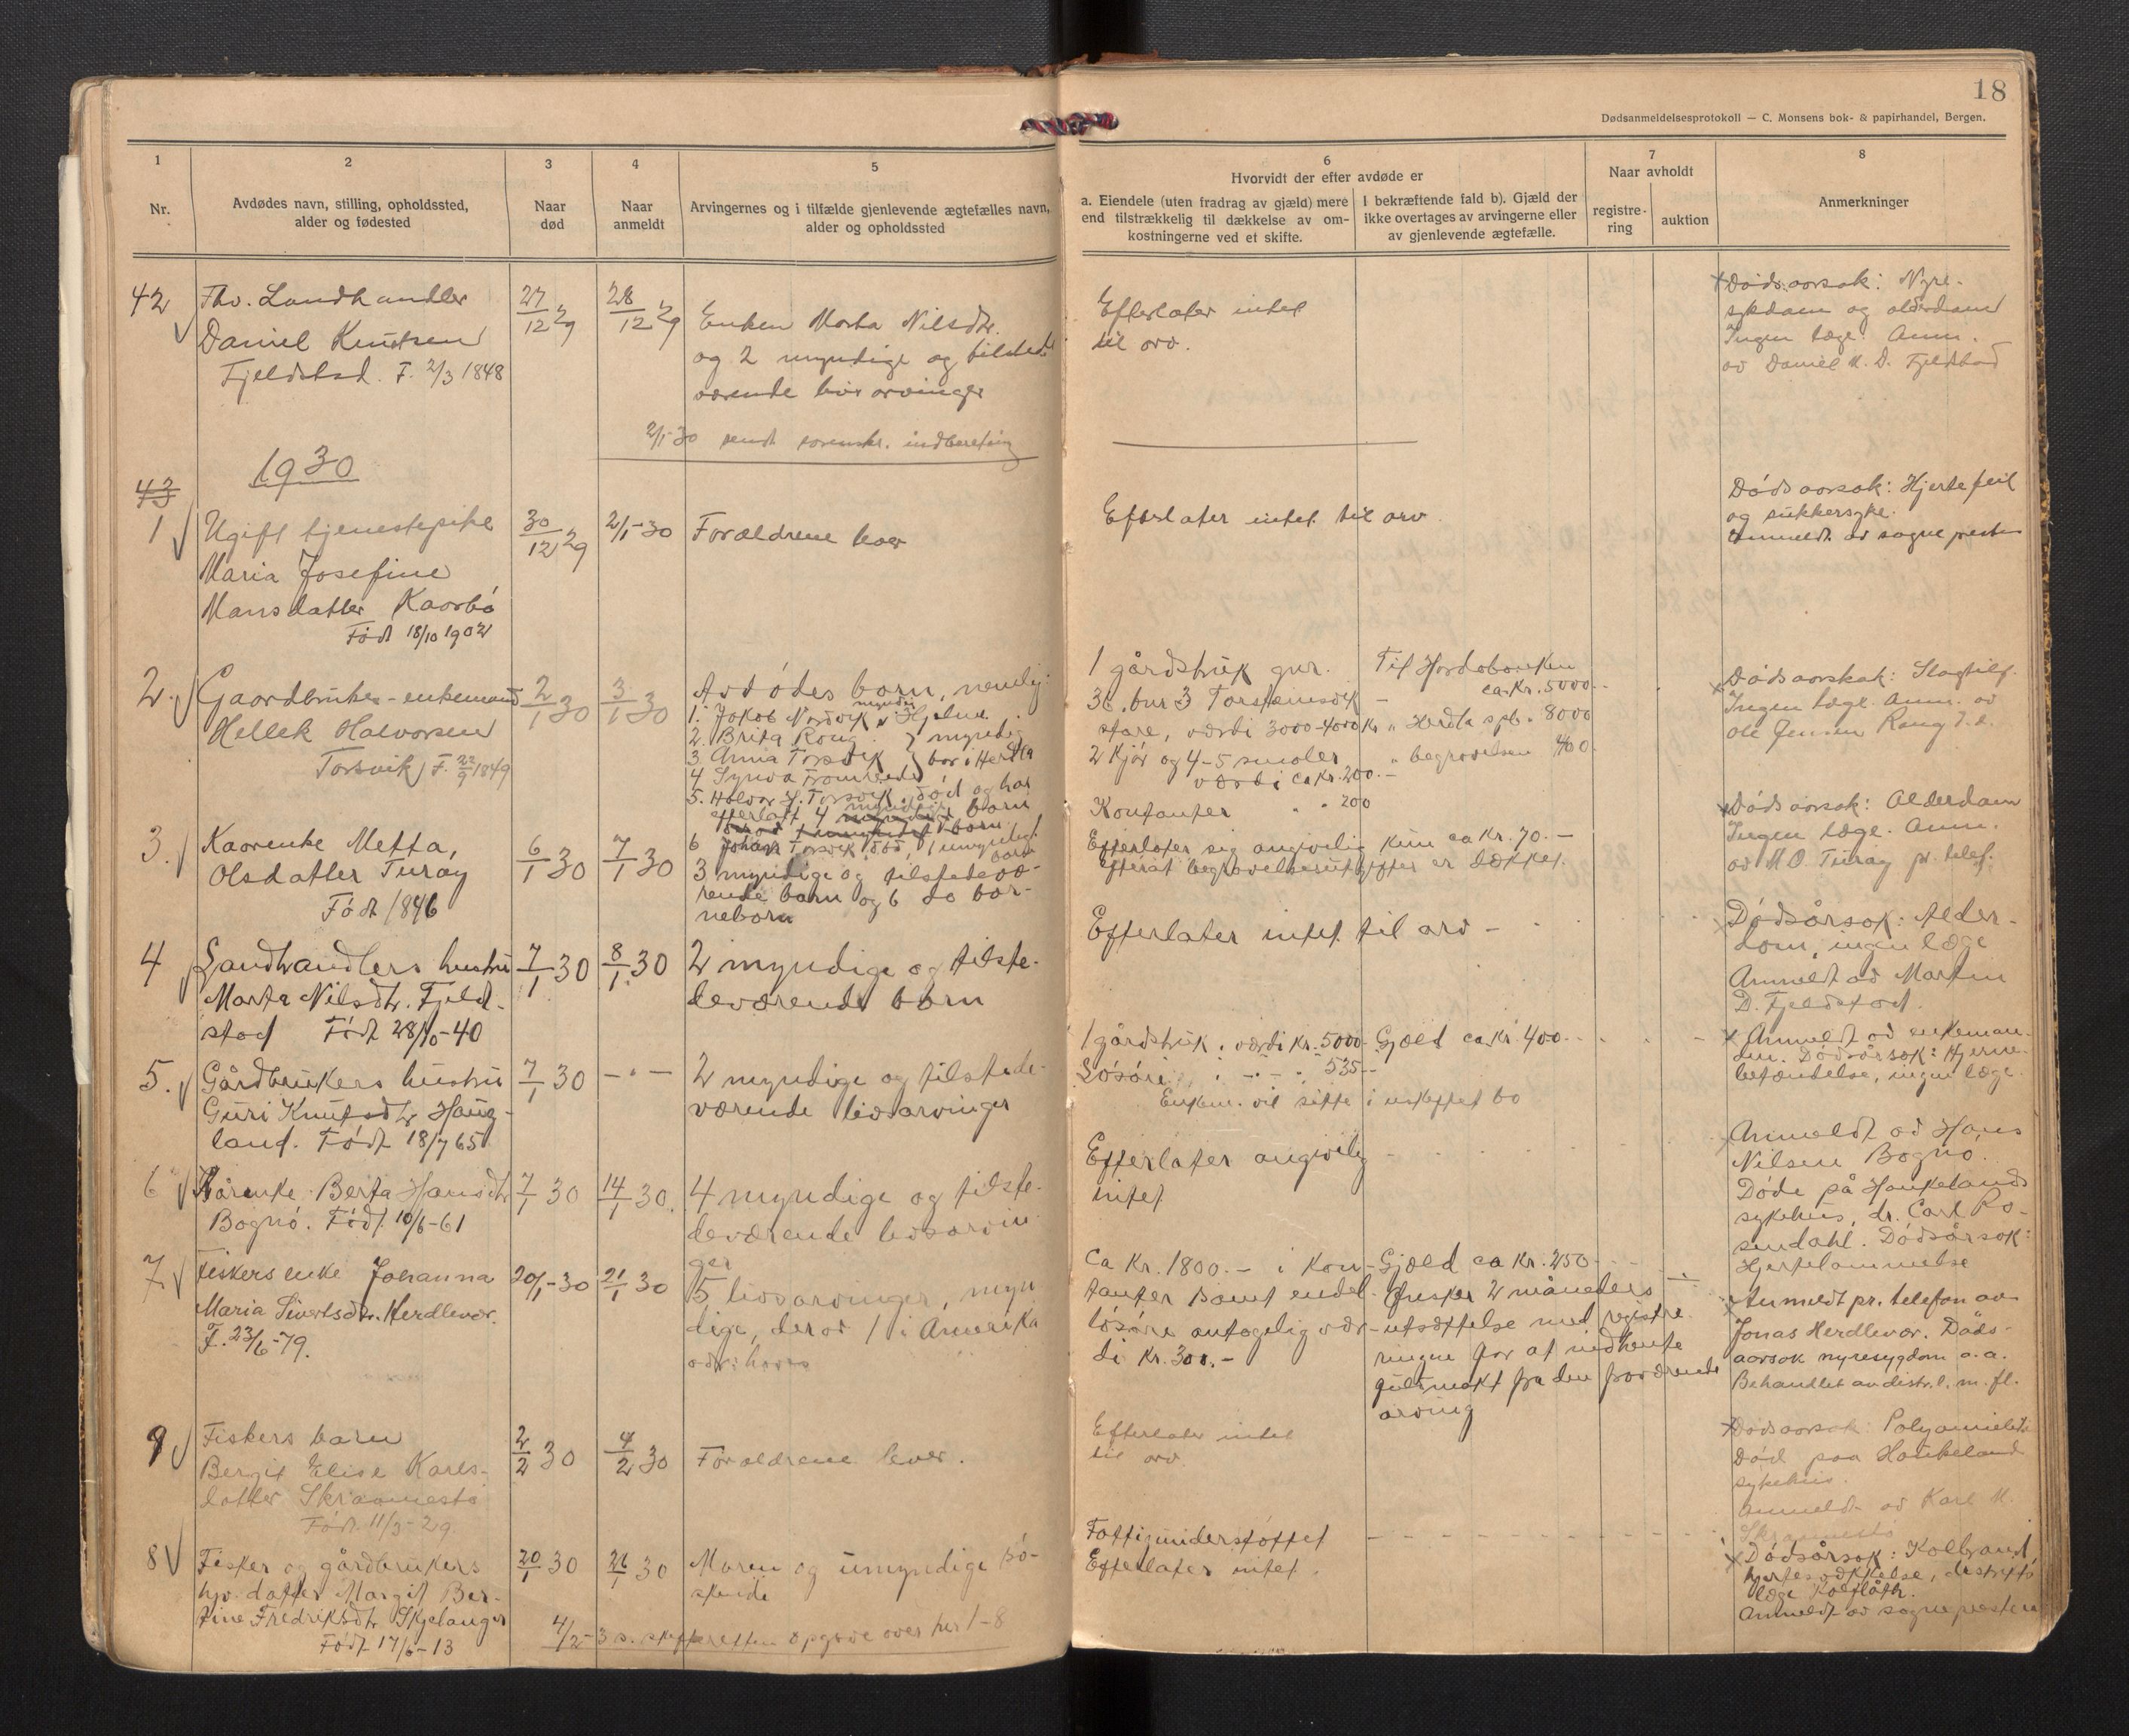 18
Dødsanmeldelsesprotokoll — C. Monsens bok- & papirhandel, Bergen.
1
Nr.
2
Avdødes navn, stilling, opholdssted,
alder og fødested
3
Naar
død
4
Naar
anmeldt
5
Arvingernes og i tilfælde gjenlevende ægtefælles navn,
alder og opholdssted
6
Hvorvidt der efter avdøde er
a. Eiendele (uten fradrag av gjæld) mere
end tilstrækkelig til dækkelse av om-
kostningerne ved et skifte.
I bekræftende fald b). Gjæld der
ikke overtages av arvingerne eller
av gjenlevende ægtefælle.
7
Naar avholdt
registre-
ring
auktion
8
Anmerkninger
42
Fhv. Landhandler
Daniel Knutsen
Fjeldstad. F. 2/3 1848
27/12 29
28/12 29
Enken Marta Nilsdtr.
og 2 myndige og tilstede
værende livsarvinger
Efterlater intet
til arv.
Dødsaarsak: Nyre-
sykdom og alderdom
Ingen læge. Anm.
av Daniel M. D. Fjeldstad
2/1-30 sendt sorenskr. indberetning
1930
43
1
Ugift tjenestepike
Maria Josefine
Mansdatter Kaarbø
Født 18/10 1902
30/12 29
2/1-30
Forældrene lever
Efterlater intet til arv
Dødsaarsak: Hjertefeil
og sukkersyke.
Anmeldt av sogneprest
2.
Gaardbruker-enkemand
Hellek Halvorsen
Torsvik, F. 22/9 1849
2/1 30
3/1 30
Avdødes barn, nemlig:
1. Jakob Norsvik, myndig, Hjelme
2. Brita Rong } myndig
3. Anna Torsvik } bor i Herdla
4 Synva Fromreide
5. Halvor H. Torsvik, død og har
efterlatt 4 myndige barn
6 Johan Torsvik, død, 1 umyndigt
barn
1 gårdsbruk gnr.
36, bnr 3 Torsteinsvik
store, værdi 3000-4000 kr
2 kjør og 4-5 smaler
værdi ca kr. 200.-
Kontanter " " 200
Til Hordabanken
ca. kr. 5000.-
" Herdla spb. " 8000
" begravelsen 400
Dødsaarsak: Slagtilf.
Ingen læge. Anm. av
Ole Jensen Rong d.e.
3.
Kaarenke Metta,
Olsdatter Turøy
Født 1846
6/1 30
7/1 30
3 myndige og tilstedevæ-
rende barn og 6 do bar-
nebarn
Efterlater sig angivelig kun ca kr. 70.—
Efterat begravelsesutgifter er dækket.
Dødsaarsak: Alderdom
Ingen læge. Anm.
av M O Turøy pr. telef.
4
Landhandlers hustru
Marta Nilsdtr. Fjeld-
stad Født 28/10-40
7/1 30
8/1 30
2 myndige og tilste-
deværende barn
Efterlater intet til arv -
Dødsårsak: Alder-
dom, ingen læge
Anmeldt av Martin
D. Fjeldstad.
5.
Gårdbrukers hustru
Guri Knutsdtr Haug-
land. Født 18/7 65
7/1 30
— " —
2 myndige og tilstede-
værende livsarvinger
1 gårdsbruk, værdi kr. 5000.-
Løsøre " - " - 535.-
Enkem. vil sitte i uskiftet bo
Gjæld ca. kr. 400.-
Anmeldt av enkeman-
den. Dødsårsak: Hjerne-
betændelse, ingen læge
6
Kårenke Berta Hansdtr
Bognø. Født 10/6-61
7/1 30
14/1 30.
4 myndige og tilste-
deværende livsarvin-
ger
Efterlater angivelig
intet
Anmeldt av Hans
Nilsen Bognø.
Døde på Haukelands
sykehus, dr. Carl Ro-
sendahl. Dødsårsak:
Hjertelammelse
7
Fiskers enke Johanna
Maria Sivertsdtr. Herdlevær.
F. 23/6-79.
20/1-30
21/1 30
5 livsarvinger, myn-
dige, derav 1 i Amerika
Ca kr. 1800.— i kon-
tanter samt endel
løsøre antagelig vær-
di kr. 300.-
Gjæld ca kr. 250.-
Ønsker 2 måneders
utsættelse med registre-
ringen for at indhente
fuldmakt fra den fraværende
arving
Anmeldt pr. telefon av
Jonas Herdlevær. Døds-
aarsak nyresygdom o.a.
Behandlet av distr.l. m. fl.
9
Fiskers barn
Bergit Elise Karls-
datter Skraamestø
Født 11/3-29
2/2 30
4/2 30
Forældrene lever.
Efterlater intet
til arv.
Dødsaarsak:
Død paa Haukeland
sykehus.
Anmeldt av Karl M.
Skraamestø
8
Fisker og gårdbrukers
hjv. datter Margit Ber-
tine Fredriksdtr Skjelanger
Født 17/6-13
20/1 30
26/1 30
Moren og umyndige sø-
skende
Fattigunderstøttet
Efterlater intet.
Dødsårsak: Koldbrand,
hjertesvækkelse, distrikts
læge
Anmeldt av sognepresten
4/2-30. skifteretten opgave over nr 1-8